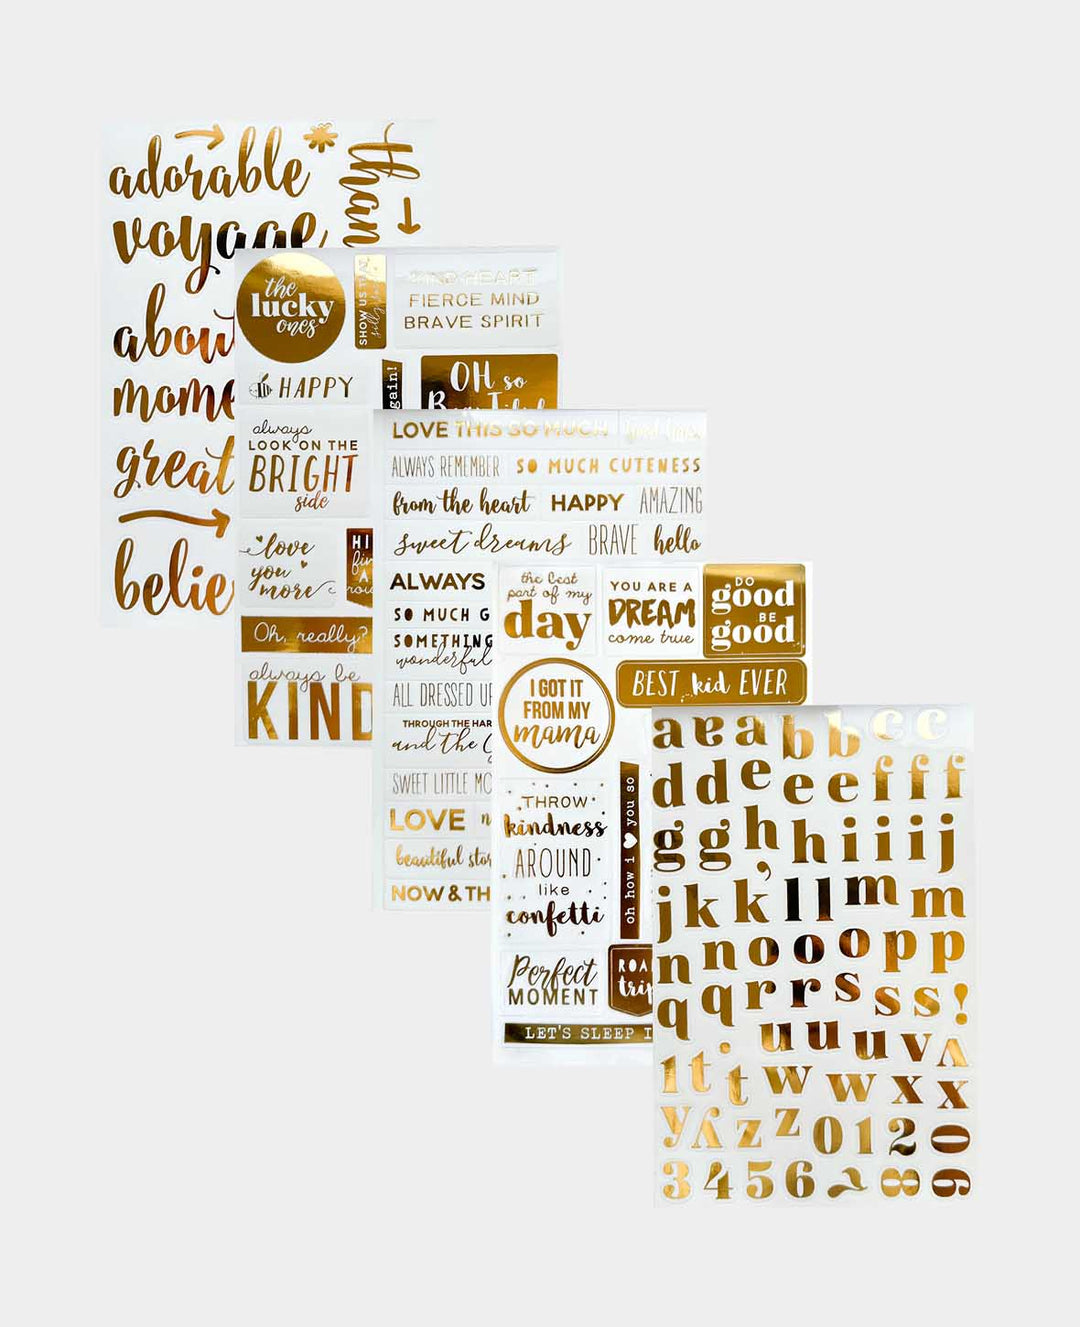 adorable
than
voyage
abou
mome
great
belie
the
lucky
ones
SHOW US THAT
KIND HEART
FIERCE MIND
BRAVE SPIRIT
HAPPY
gain!
OH so
Beautiful
always
LOOK ON THE
BRIGHT
side
love
you
more
HI
Oh, really?
always be
KIND
LOVE THIS SO MUCH
ALWAYS REMEMBER SO MUCH CUTENESS
from the heart HAPPY AMAZING
sweet dreams BRAVE hello
ALWAYS
SO MUCH G
SOMETHING
wonderful
ALL DRESSED UP
THROUGH THE HAR
and the
SWEET LITTLE MO
LOVE
beautiful stor
NOW & TH
the best
part of my
day
YOU ARE A
DREAM
come true
DO
good
BE
good
BEST kid EVER
I GOT IT
FROM MY
mama
THROW
kindness
AROUND
like
confetti
oh how i ♥ you so
Perfect
MOMENT
ROA
trip
LET'S SLEEP I
a a a b b c c
d d e e e f f f
g g h , h i i i j
j k k l l m m
n n o o o p p
q q r r s s s !
u u u v v
1 t t w w x x
y y z z 0 1 2 0
3 4 5 6 7 8 9